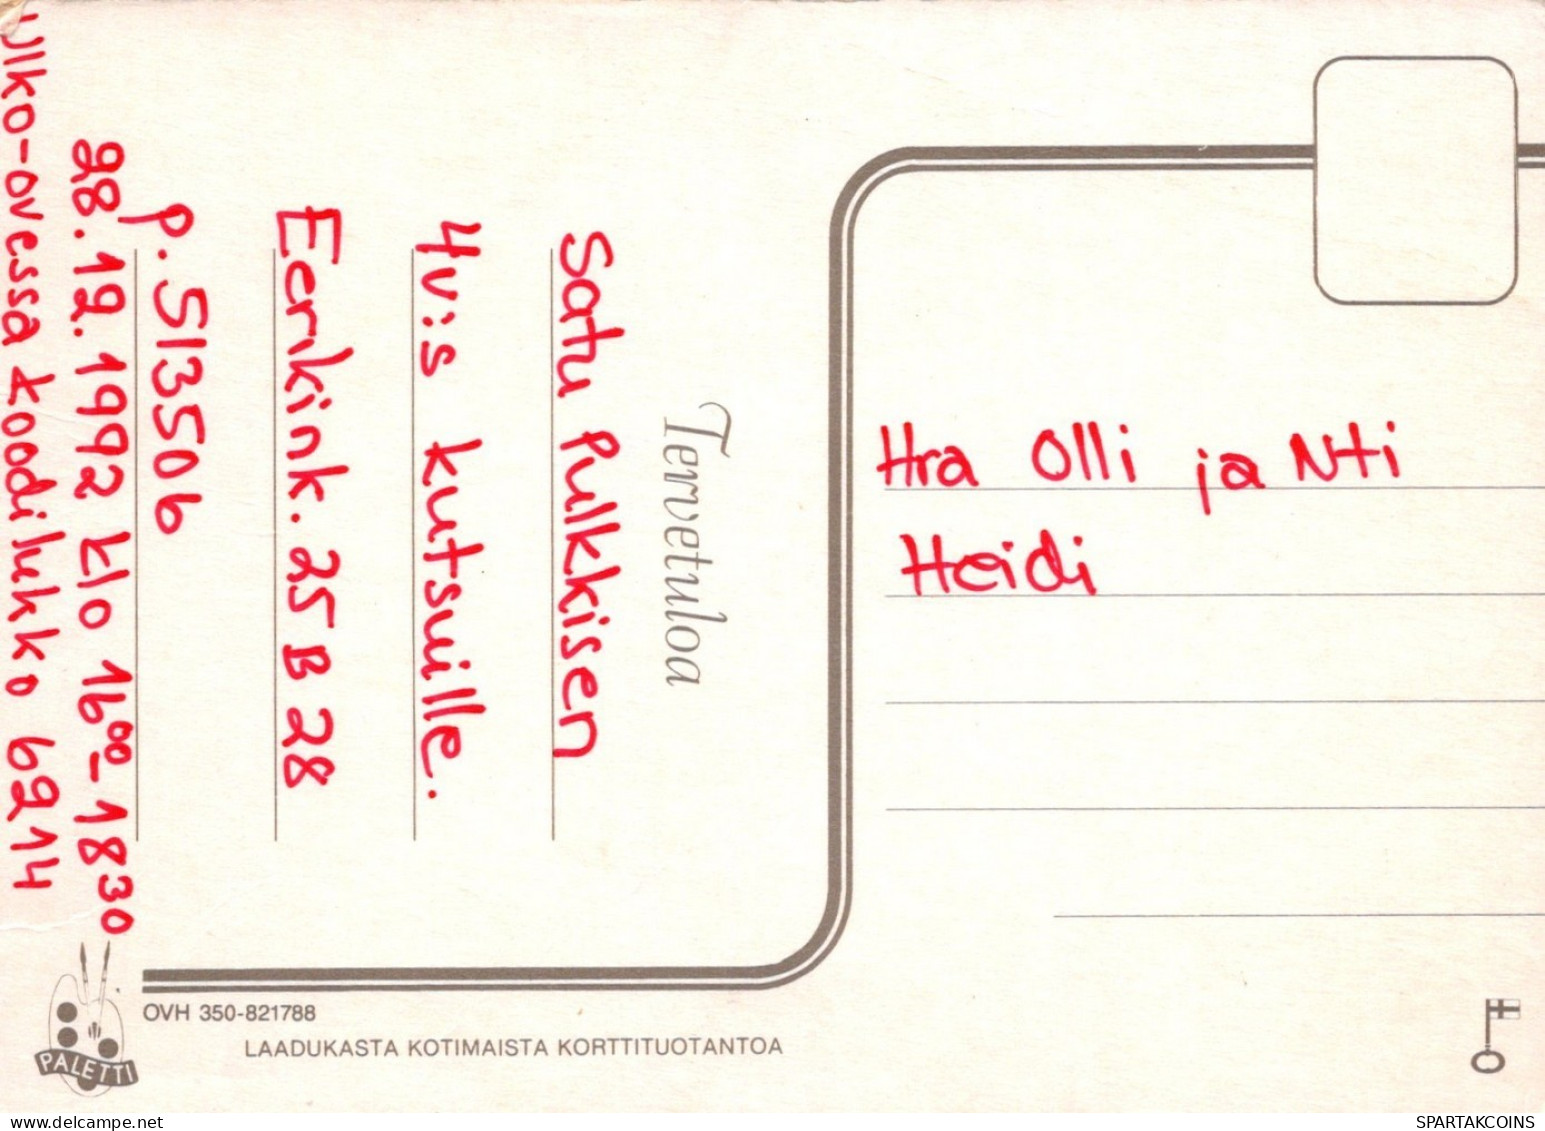 Tervetuloa
Satu Pulkkisen
4v:s kutsuille.
Eerikink. 25 B 28
p. 513506
28.12.1992 klo 16⁰⁰-18³⁰
Ulko-ovessa koodilukko 6214
Hra Olli ja Nti
Heidi
OVH 350-821788
LAADUKASTA KOTIMAISTA KORTTITUOTANTOA
PALETTI
delcampe.net
SPARTAKCOINS